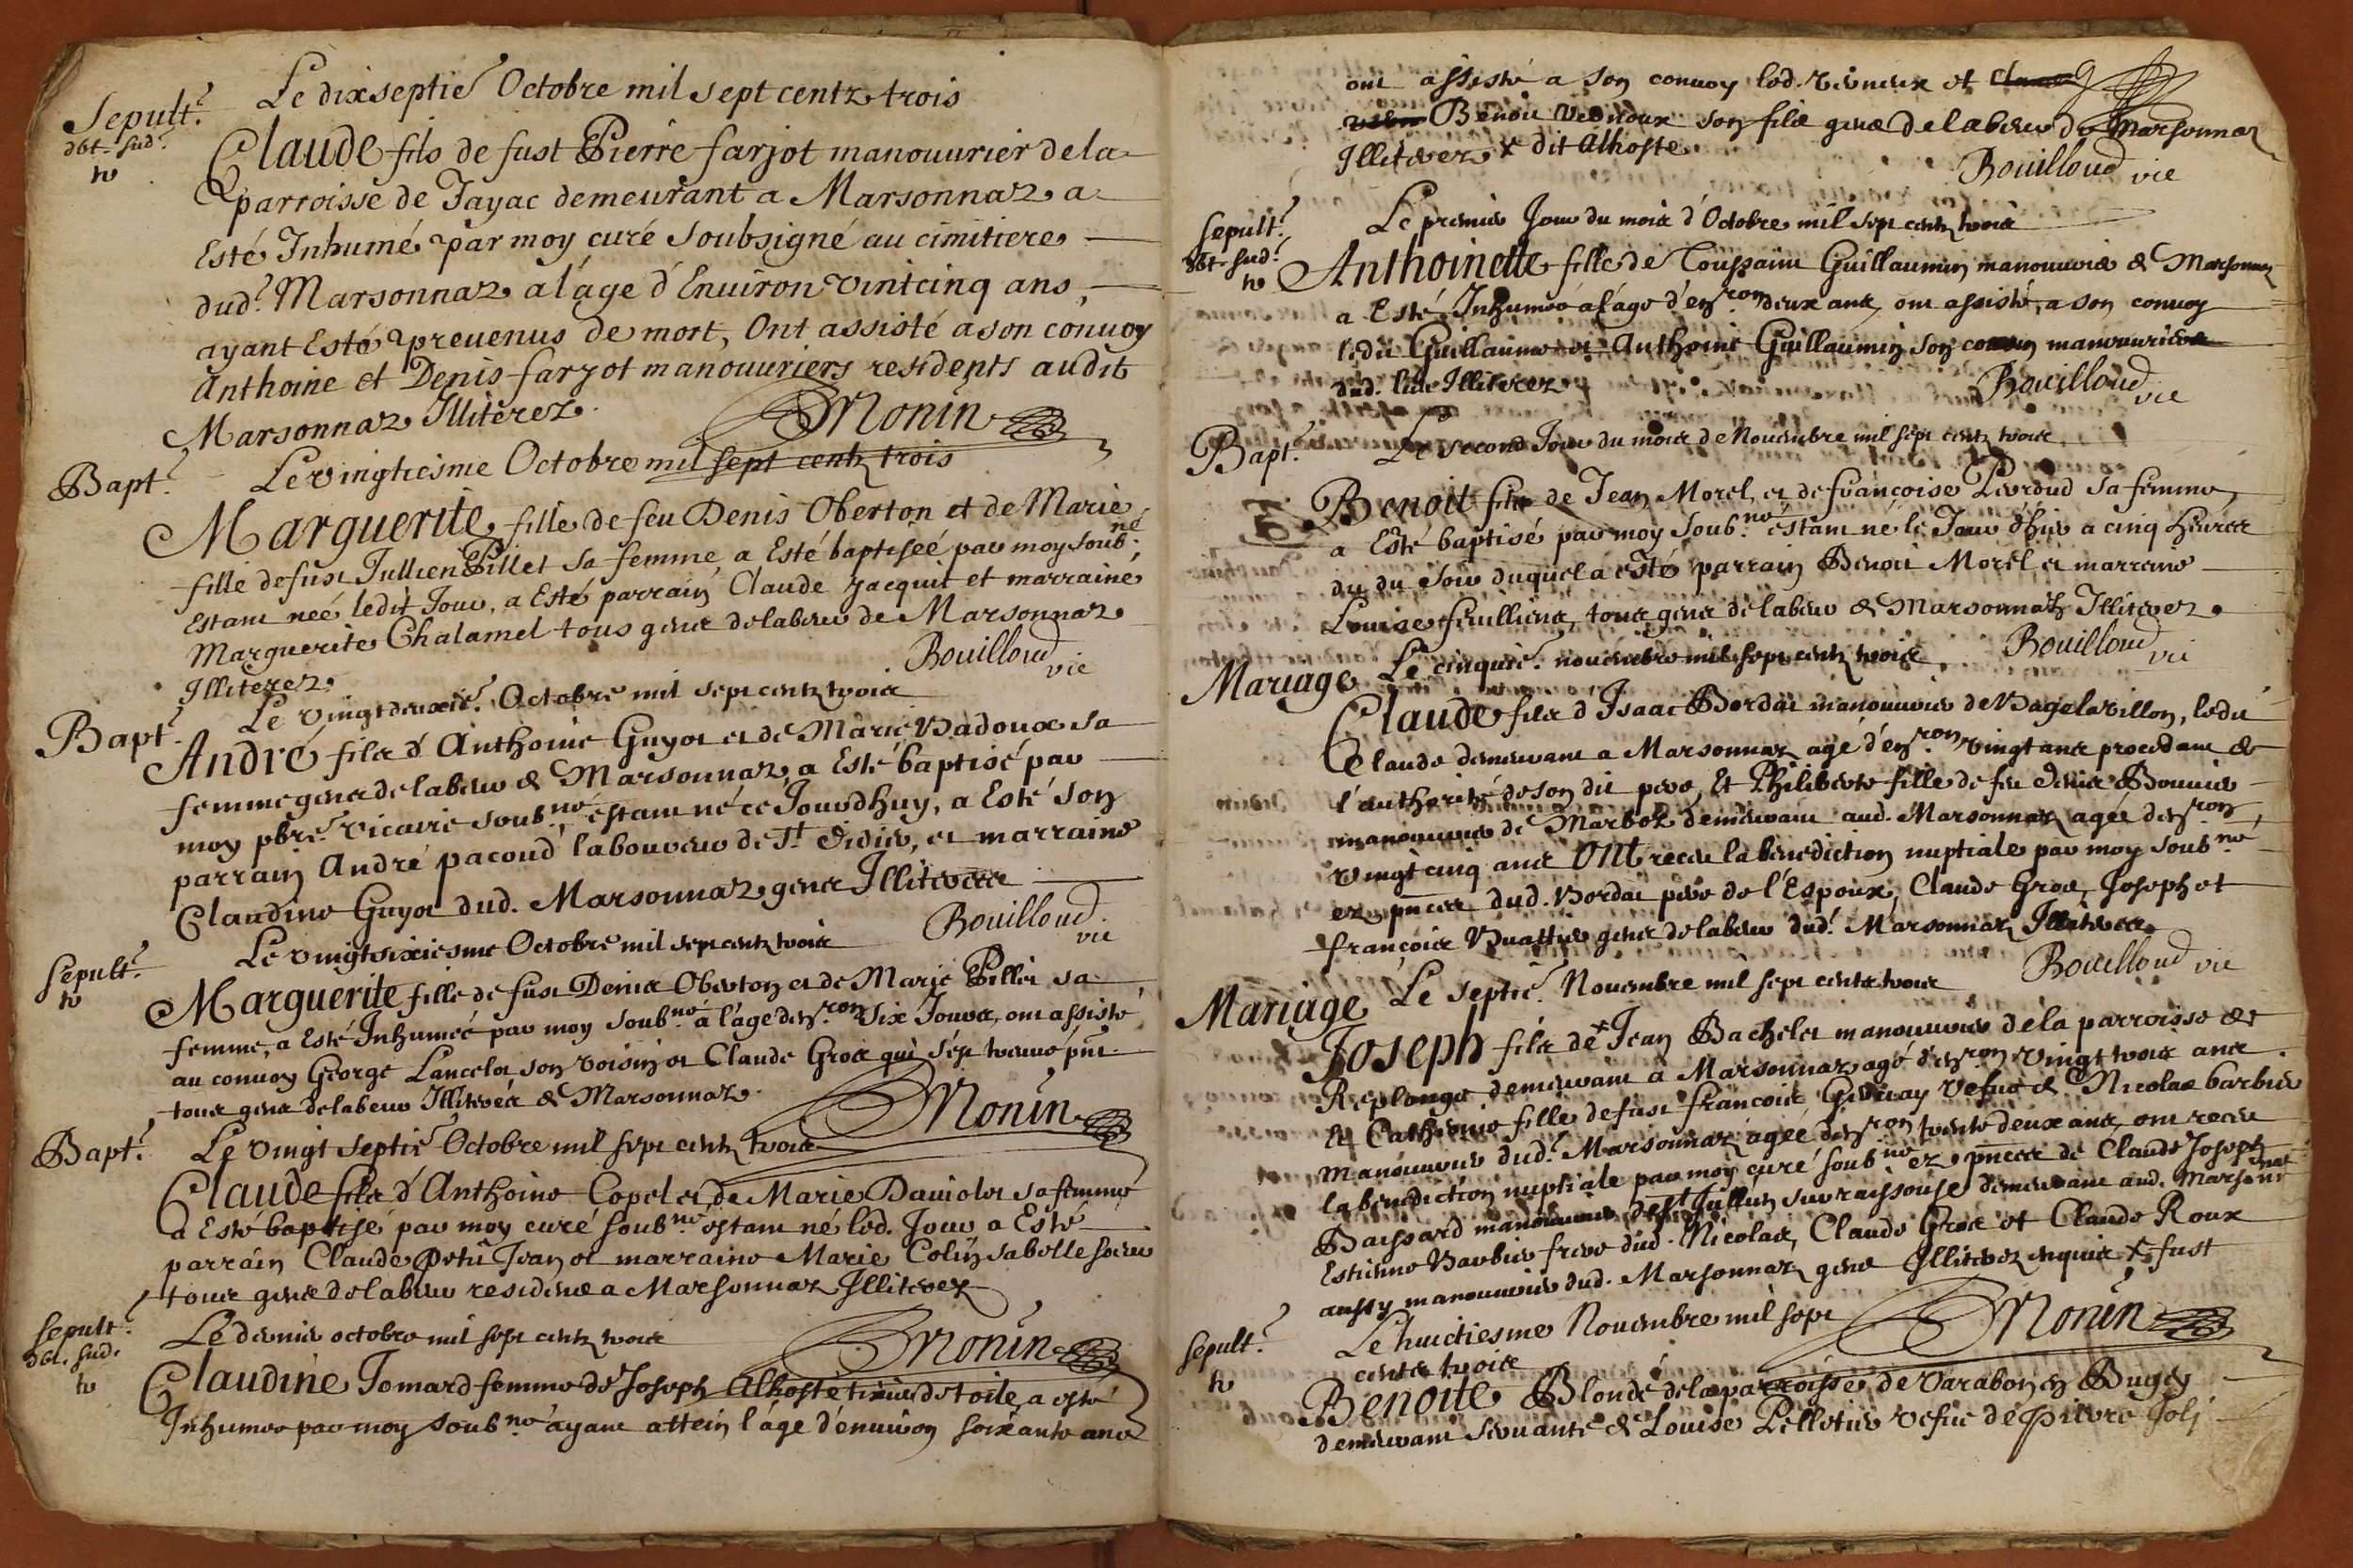 Le dixseptie Octobre mil sept centz trois
Sepult.
Claude fils de fust Pierre farjot manouurier dela
parroisse de Jayac demeurant a Marsonnaz a
Esté Inhumé par moy curé Soubsigné au cimitiere
dud. Marsonnaz a l'age d'Enuiron vintcinq ans,
ayant Esté preuenus de mort, Ont assisté a son conuoy
Anthoine et Denis farjot manouuriers residents audit
Marsonnaz Illiterez.
Monin
Bapt.
Le vingtiesme Octobre mil sept centz trois
Marguerite fille de feu Denis Oberton et de Marie
fille de fust Jullien Pillet sa femme, a Esté baptiseé par moy soub.né
Estant neé ledit Jour, a Esté parrain Claude Jacquit et marraine
Marguerite Chalamel tous gens de labeur de Marsonnaz
Illiterez.
Bouilloud vic
Bapt.
Le vingtdeuxie. Octobre mil sept centz trois
André fils d'Anthoine Guyot et de Marie Vadoux sa
femme gens de labeur de Marsonnaz, a Esté baptisé par
moy pbre. vicaire soub.né estant né ce Jourdhuy, a Esté son
parrain André pacoud laboureur de St. Didier, et marraine
Claudine Guyot dud. Marsonnaz gens Illiteres
Bouilloud vic
Sepult.
Le vingtsixiesme Octobre mil sept centz trois
Marguerite fille de fust Denis Oberton et de Marie Pillet sa
femme, a Esté Inhumeé par moy soub.né a l'age den.ron six Jours, ont assisté
au conuoy George Lancelot son voisin et Claude Gros qui s'est treuué pnt.
tous gens de labeur Illiterés de Marsonnaz.
Monin
Bapt.
Le vingt septie Octobre mil sept centz trois
Claude fils d'Anthoine Copel et de Marie Dauiolet sa femme
a Esté baptisé par moy curé soub.né estant né led. Jour a Esté
parrain Claude petit Jean et marraine Marie Colin sa belle soeur
tous gens de labeur residens a Marsonnaz Illiterez
Monin
Sepult.
Le dernier octobre mil sept centz trois
Claudine Tomard femme de Joseph Alhoste tixier de toile, a esté
Inhumeé par moy soub.né ayant attein l'age d'enuiron soixante ans
ont assisté a son conuoy led. et
Benoit son fils gens de labeur de Marsonnaz
Illiterez x dit Alhoste
Bouilloud vic
Sepult.
Le premier Jour du mois d'Octobre mil sept centz trois
Anthoinette fille de Toussaint Guillaumin manouurier de Marsonnaz
a Esté Inhumeé a l'age d'en.ron deux ans, ont assisté, a son conuoy
ledit Guillaume et Anthoine Guillaumin son cousin manouuriers
dud. lieu Illiterez
Bouilloud vic
Bapt.
Le second Jour du mois de Nouembre mil sept centz trois
Benoit fils de Jean Morel, et de françoise Perdud sa femme
a Esté baptisé par moy soub.né estant né le Jour d'hier a cinq heures
du du soir duquel a esté parrain Benoit Morel et marraine
Louise feuilliens, tous gens de labeur de Marsonnaz Illiterez.
Bouilloud vic
Mariage
Le cinquie. nouembre mil sept centz trois
Claude fils d'Isaac Bordat manouurier de Vagelavillon, ledit
Claude demeurant a Marsonnaz agé d'en.ron vingt ans procedant de
l'authorité de son dit pere, Et Philiberte fille de feu Denis Bouuier
manouurier de Marboz demeurant aud. Marsonnaz ageé den.ron
vingt cinq ans Ont receu la benediction nuptiale par moy soub.né
ez pnces dud. Bordat pere de l'Espoux, Claude Gros, Joseph et
françois Vuattier gens de labeur dud. Marsonnaz Illiteres
Bouilloud vic
Mariage
Le septie. Nouembre mil sept centz trois
Joseph fils de x Jean Bachelet manouurier de la parroisse de
Replonge demeurant a Marsonnaz agé d'en.ron vingt trois ans
Et Catherine fille de fust francois Geuray vefue de Nicolas barbier
manouurier dud. Marsonnaz ageé den.ron trente deux ans, ont receu
la benediction nuptiale par moy curé soub.né ez pnces de Claude Joseph
Baissard manouurier de St. Jullien sur raissouse demeurant aud. Marsonnaz
Estienne Barbier frere dud. Nicolas, Claude Gros et Claude Roux
aussy manouurier dud. Marsonnaz gens Illiterez enquis x fust
Monin
Sepult.
Le huictiesme Nouembre mil sept
centz trois
Benoite Blonde de la parroisse de Varabon en Bugey
demeurant seruante de Louise Pelletier vefue de pierre Joly